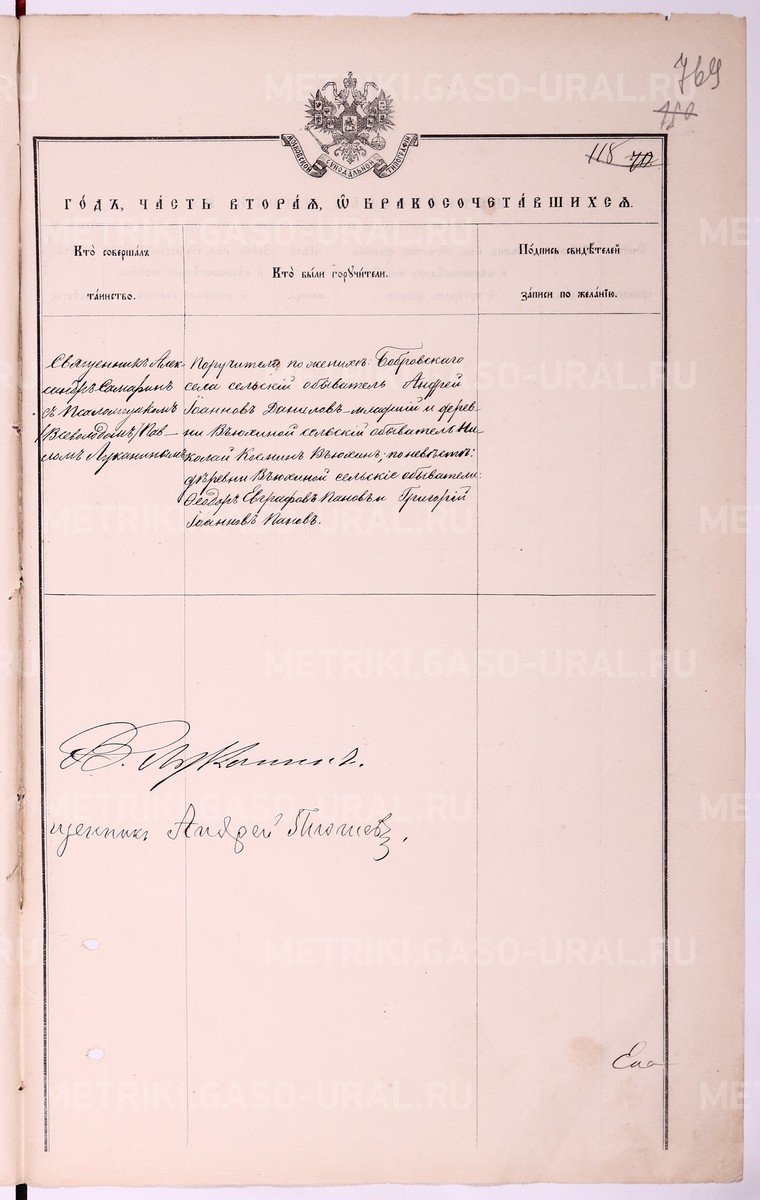 769
118 70.
МОСКОВСКОЙ СѴНОДАЛЬНОЙ ТИПОГРАФІИ
ГО́ДЪ, ЧА́СТЬ ВТОРА́Я, Ѡ БРАКОСОЧЕТА́ВШИХСЯ.
Кто̀ соверша́лъ
та́инство.
Кто̀ бы́ли поручи́тели.
По́дпись свидѣ́телей
за́писи по жела́нїю.
Священникъ Алек-
сандръ Самаринъ
съ Псаломщикомъ
/Всеволодомъ/ Пав-
ломъ Луканинымъ
Поручители по женихѣ: Бобровскаго
села сельскій обыватель Андрей
Іоанновъ Даниловъ-младшій и дерев-
ни Вьюхиной сельскій обыватель Ни-
колай Космин Вьюхинъ; по невѣстѣ:
деревни Вьюхиной сельскіе обыватели:
Ѳеодоръ Евграфовъ Пановъ и Григорій
Іоанновъ Пановъ.
В. Луканинъ.
щенникъ Андрей
METRIKI.GASO-URAL.RU